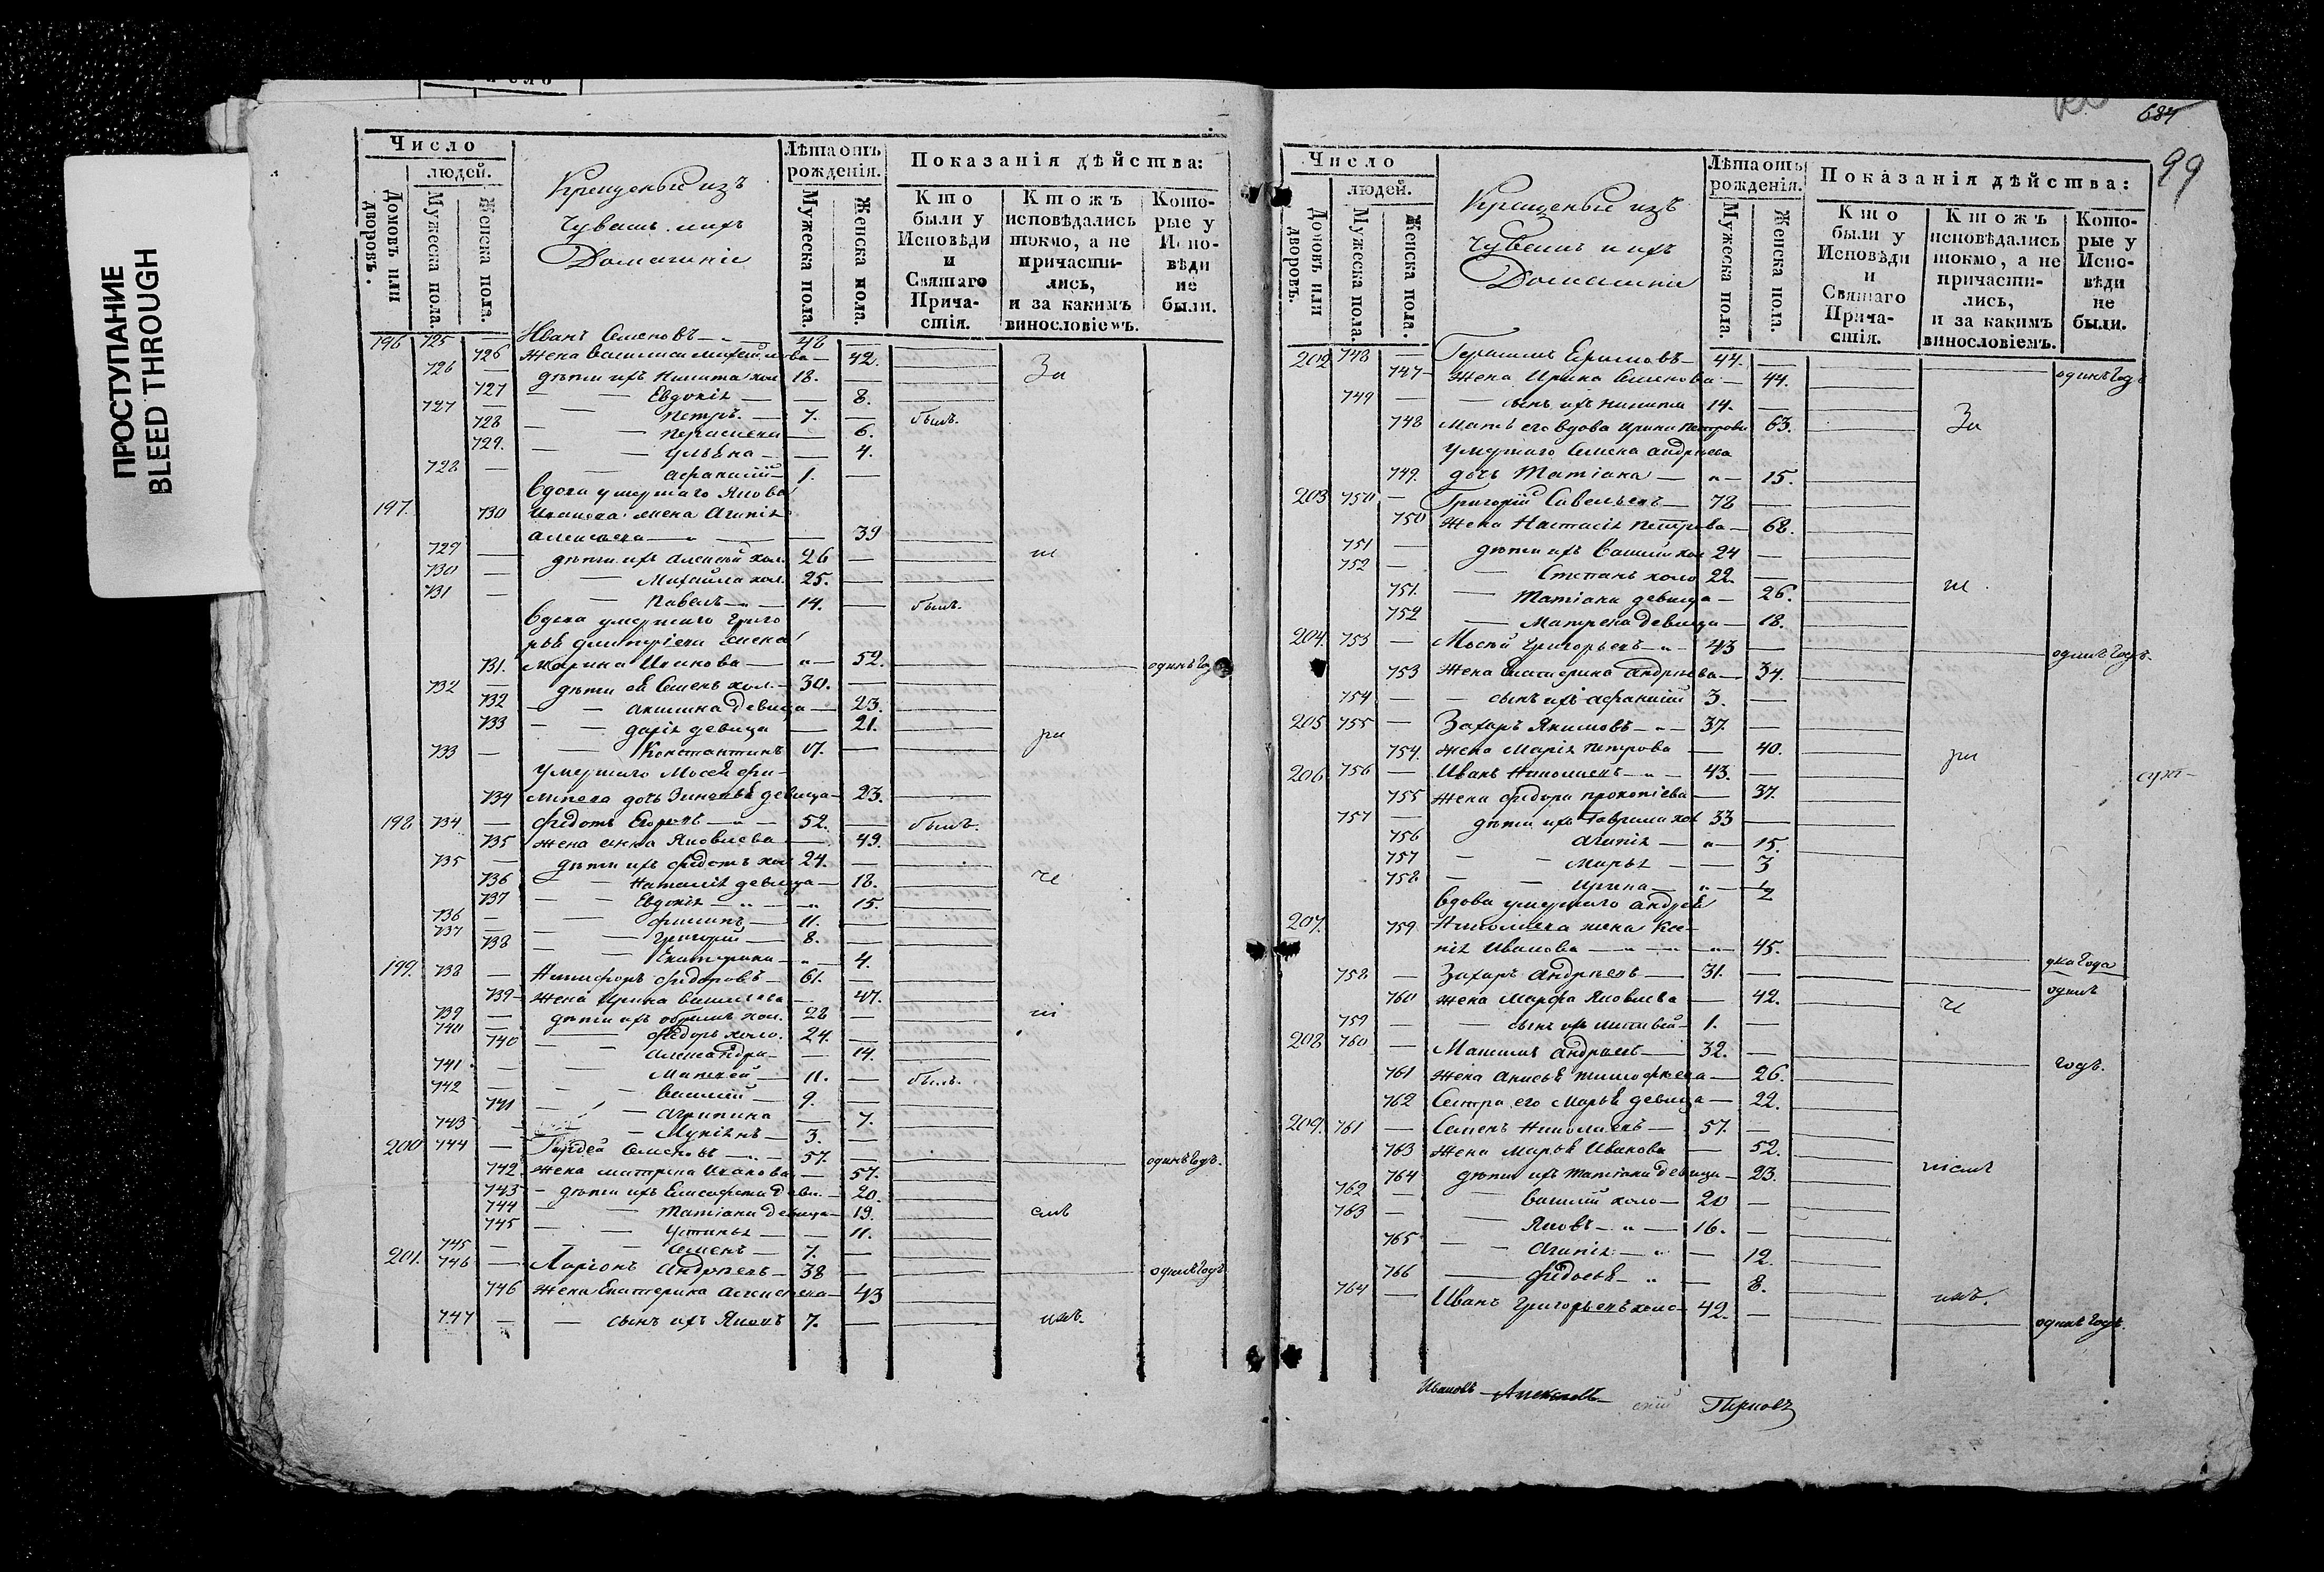 ПРОСТУПАНИЕ
BLEED THROUGH
Число
людей.
Домовъ или дворовъ.
Мужеска пола.
Женска пола.
Крещеные изъ
Чувашъ и ихъ
Домашніе
Лѣта отъ рожденія.
Мужеска пола.
Женска пола.
Показанія дѣйства:
Кто были у Исповѣди и Святаго Причастія.
Ктожъ исповѣдались токмо, а не причастились, и за какимъ винословіемъ.
Которые у Исповѣди не были.
196 725 — Иванъ Семеновъ — 48 —
726 жена Василиса — 42.
726 — дѣти ихъ Никита хол 18. — За
727 — Евдокія — 8.
727 — Петръ — 7. — былъ.
728 — 6.
729. — Ульяна — 4.
728 — Афанасій — 1. —
вдова умершаго Якова
197. 730 Иванова жена Агапія
39
729 — дѣти ихъ Алексѣй хол. 26 —
730 — Михайла хол. 25. —
731 — Павелъ — 14. — былъ.
вдова умершаго Григо
рья Дмитріева жена
731. Марина Иванова — 52. одинъ
732 — дѣти ея Семенъ хол. — 30. —
732 — — Акилина девица — 23.
733 — — Дарія девица — 21.
733 — — Константинъ 17. —
умершаго Мосея Фи-
734 девица — 23.
198 734 — Федотъ Егоровъ — 52. — былъ.
735 жена Анна Яковлева — 49.
735 — дѣти ихъ Федотъ хол 24. —
736 — Наталія девица — 18.
737 — — Евдокія — 15.
736 — — Филипъ — 11. —
737 — — Григорій — 8. —
738 — — Екатерина — 4.
199. 738 — Никифоръ Федоровъ — 61. —
739 — жена Ирина Васильева — 47.
739 — дѣти ихъ хол. 28 —
740 — Федоръ холо. 24. —
740 — Александра — 14.
741 — Матвей — 11. — былъ.
742 — — Василій — 9. —
741 — — Агрипина — 7.
743 — 3. —
200 744 — Гордей Семеновъ — 57. — одинъ годъ.
742. жена Матрена Иванова — 57.
743 — дѣти ихъ Елисафета деви. — 20.
744 — Татіана девица — 19.
745 — Устинья — 11.
745 — — Семенъ — 7. —
201. 746 — Ларіонъ Андреевъ — 38 — одинъ годъ
746 жена Екатерина Алексеева — 43
747 — — сынъ ихъ Яковъ 7. —
684
99
Число
людей.
Домовъ или дворовъ.
Мужеска пола.
Женска пола.
Крещеные изъ
Чувашъ и ихъ
Домашніе
Лѣта отъ рожденія.
Мужеска пола.
Женска пола.
Показанія дѣйства:
Кто были у Исповѣди и Святаго Причастія.
Ктожъ исповѣдались токмо, а не причастились, и за какимъ винословіемъ.
Которые у Исповѣди не были.
202 748 — Герасимъ Ефимовъ — 44. — одинъ годъ
747 — жена Ирина Семенова — 44.
749 — — сынъ ихъ Никита 14. — За
748 мать его вдова Ирина Петрова 63.
умершаго Семена Андреева
749. дочь Татіана — 15.
203 750 — Григорій Савельевъ — 78 —
750 жена Настасія Петрова — 68.
751 — дѣти ихъ Василій хол 24 —
752 — — Степанъ холо 22. —
751. — Татіана девица — 26.
752 — Матрена девица — 18.
204. 753 — Мосѣй Григорьевъ — 43 — одинъ годъ.
753 жена Екатерина Андреева — 34.
754 — — сынъ ихъ Афанасій 3. —
205 755 — Захаръ Якимовъ — 37 —
754. жена Марія Петрова — 40.
206 756 — Иванъ Николаевъ — 43. —
755 жена Федора Прокопіева — 37.
757 — дѣти ихъ Гаврила хол 33 —
756 Агапія — 15.
757 — — Марья — 3
758 — — Ирина — 1/2
вдова умершаго Андрея
207. 759 Николаева жена Ксе-
нія Иванова — 45.
758 — Захаръ Андреевъ — 31. — два года
760 жена Марфа Яковлева — 42. одинъ
759 — — сынъ ихъ Матвей — 1. —
208 760 — Максимъ Андреевъ — 32. — годъ.
761 жена Анисья Тимофеева — 26.
762 Сестра его Марья девица — 22.
209. 761 — Семенъ Николаевъ — 57. —
763 жена Марья Иванова — 52.
764 дѣти ихъ Татіана девица — 23.
762 — Василій холо — 20 —
763 — — Яковъ — 16. —
765 — — Агапія — 12.
766 — Федосья — 8.
764 — Иванъ Григорьевъ холо — 42. — одинъ годъ.